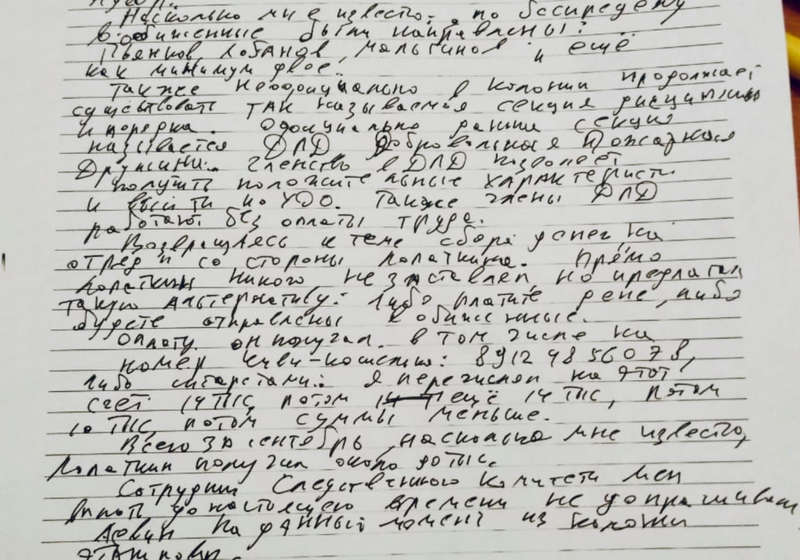 Насколько мне известо, по беспределу
в обиженные были направлены:
Пьянков Лобанов, Мальгинов и ещё
как минимум двое.
Также неофициально в колонии продолжает
существовать так называемая секция дисциплины
и порядка. Официально раньше секция
называется ДПД Добровольная Пожарная
Дружина. Членство в ДПД позволяет
получить положительные характеристи
и выйти по УДО. Также члены ДПД
работают без оплаты труда.
Возвращаясь к теме сбора денег на
отряд и со стороны Лопаткина. Прямо
Лопаткин никого не заставлял, но предлагал
такую альтернативу: либо платите денег, либо
будете отправлены в обиженные.
Оплату он получал в том числе на
номер киви-кошелька: 89124856078,
либо сигаретами. Я перечислял на этот
счет 14 тыс, потом ещё 14 тыс, потом
10 тыс, потом суммы меньше.
Всего за сентябрь, насколько мне известо,
Лопаткин получил около тыс.
Сотрудники Следственного комитета мен
вплоть до настоящего времени не допрашивали
на данный момент из колонии